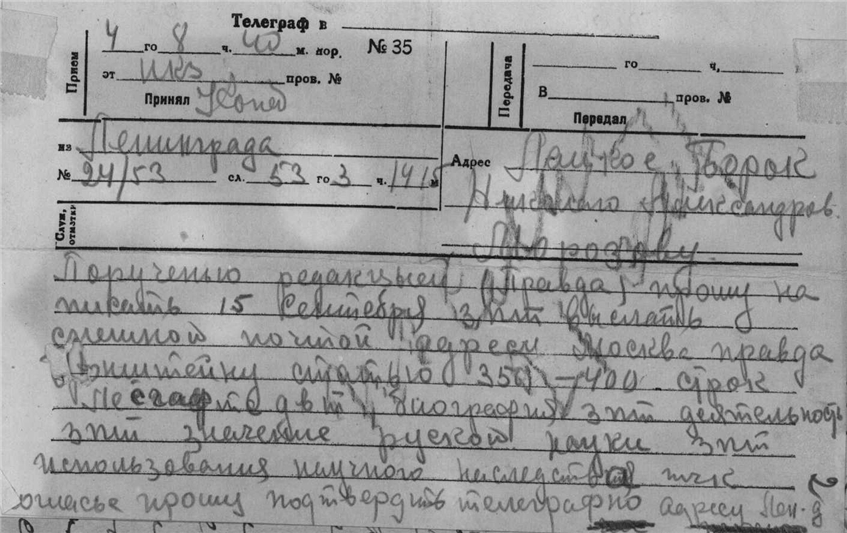 Телеграф в
4 го 8 ч. 40 м. пор. №35
Прием
от икз пров. №
Принял
го ч.
Передача
В пров. №
Передал
из Ленинграда
№ 24/53 сл. 53 го 3 ч. 1415 м
Служ. отметки
Адрес Борок
Николаю Александров.
Морозову
Порученью редакцыей (Правда) прошу на
писать 15 Сентебря зпт выслать
спешной почтой адресу Москва правда
статью 350 — 400 строк
двт биография зпт деятельность
зпт значение руской науки зпт
использования научного наследства тчк
огласье прошу подтвердить телеграфно адресу Лен-д